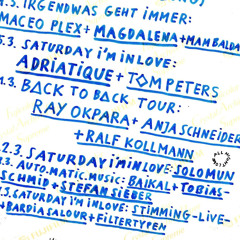 .3. IRGENDWAS GEHT IMMER:
MACEO PLEX + MAGDALENA + MAN BALDA
5.3. SATURDAY i'm IN LOVE:
ADRIATIQUE + TOM PETERS
1.3. BACK TO BACK TOUR:
RAY OKPARA + ANJA SCHNEIDER
+ RALF KOLLMANN
2.3. SATURDAY i'm IN LOVE: SOLOMUN
1.3. AUTO.MATIC.MUSIC: BAIKAL + TOBIAS-
SCHMID + STEFAN SIEBER
.3. SATURDAY i'm IN LOVE: STIMMING-LIVE-
+ BARDIA SALOUR + FILTERTYPEN